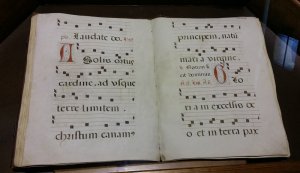 ps Laudate do.
A Solis ortus
cardine, ad usque
terre limitem.
christum canam
principem, natũ
maria virgine.
Notum
cit dominus
Glo
ria in excelsis de
o et in terra pax